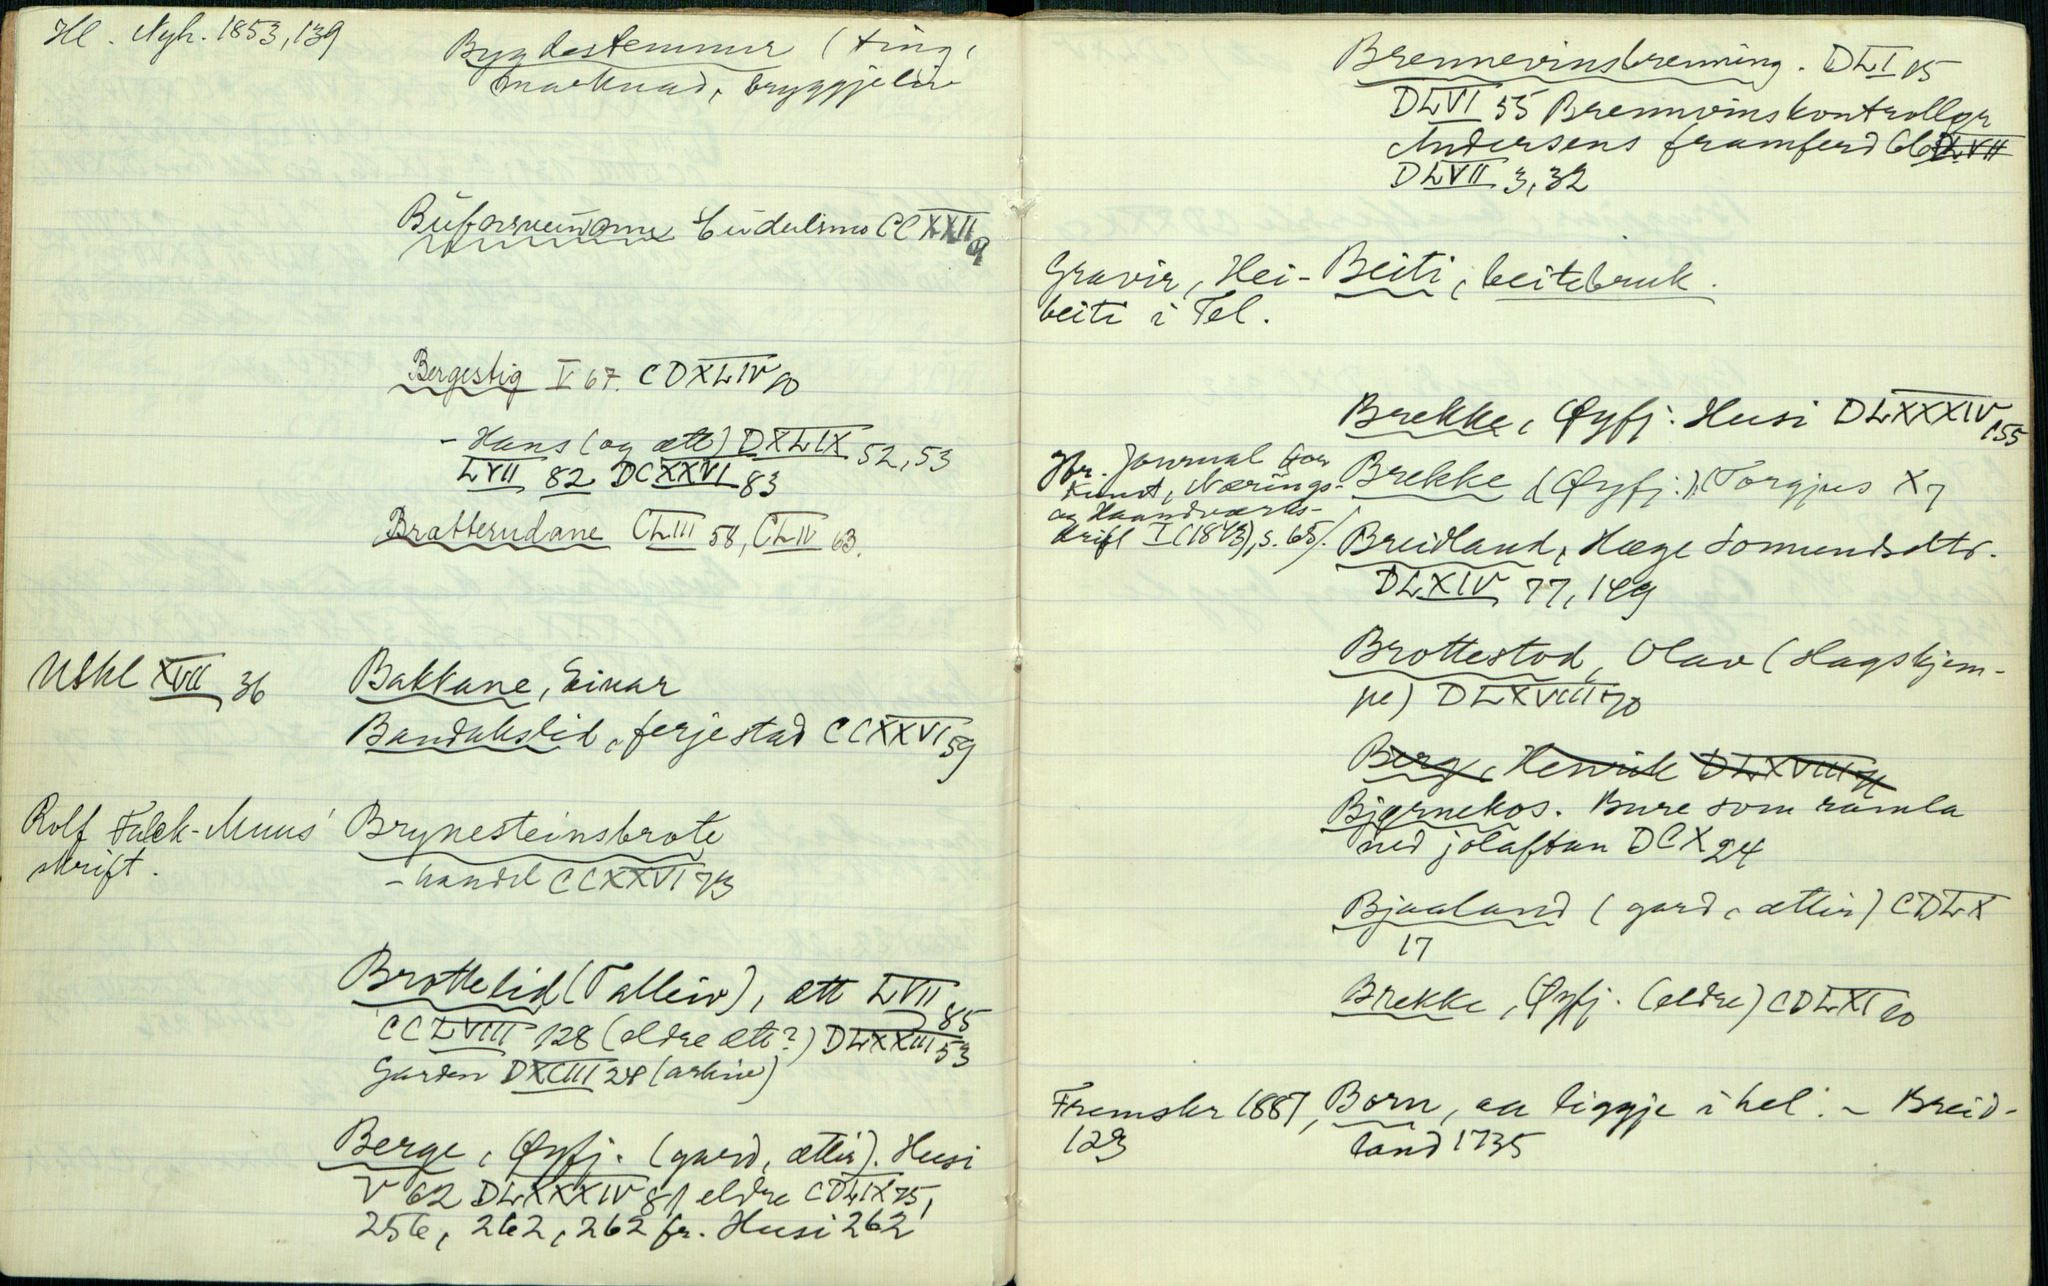 Ill. Nyh. 1853, 139
Bygdestemnur (ting,
marknad, bryggjeliv
Bufervegane Eidelsmo CCXXII 9
Bergestig V 67. CDXLIV 10
- Hans (og ætt) DXLIX 52, 53
LVII 82 DCXXVI 83
Bratterudane CLIII 58, CLIV 63.
Uskl XVII 36
Bakkane, Einar
Bandakslid, ferjestad CCXXVI 59
Rolf Falck-Muus'
skrift.
Brynesteinsbrote
- handel CCXXVI 73
Brottelid (Talleiv), ætt LVII 85
CCLVIII 128 (eldre ætt?) DLXXIII 53
Garden DXCIII 28 (arkiv)
Berge, Øyfj. (gard, ættir). Husi
V 62 DLXXXIV 81 eldre CDLIX 75,
256, 262, 262 fr. Husi 262
Brennevinsbrenning. DLI 15
DLVI 55 Brennvinskontrollør
Andersens framferd 66 DLVII
DLVII 3, 32
Gravir, Hei-
beiti i Tel.
Beiti, beitebruk.
Brekke, Øyfj. Husi DLXXXIV 155
Jfr. Journal for
Kunst, Nærings-
og Haandværks-
drift I (1843), s. 65/.
Brekke (Øyfj.), Torgjus X 7
Breidland, Hæge Somundsdtr.
DLXIV 77, 149
Brottestod, Olav (Hagskjem-
pe) DLXVIII 70
Berge, Henrik DLXVIII 71
Bjørnekos. Bure som ramla
ned jolaftan DCX 24
Bjaaland (gard, ættir) CDLX
17
Brekke, Øyfj. (eldre) CDLXI 10
Fremskr 1887,
123
Born, aa liggje i hel. - Breid-
land 1735